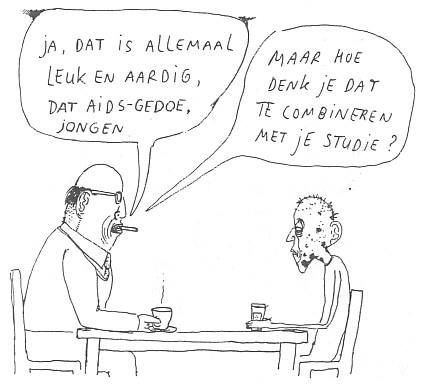 JA, DAT IS ALLEMAAL
LEUK EN AARDIG,
DAT AIDS-GEDOE,
JONGEN
MAAR HOE
DENK JE DAT
TE COMBINEREN
MET JE STUDIE?